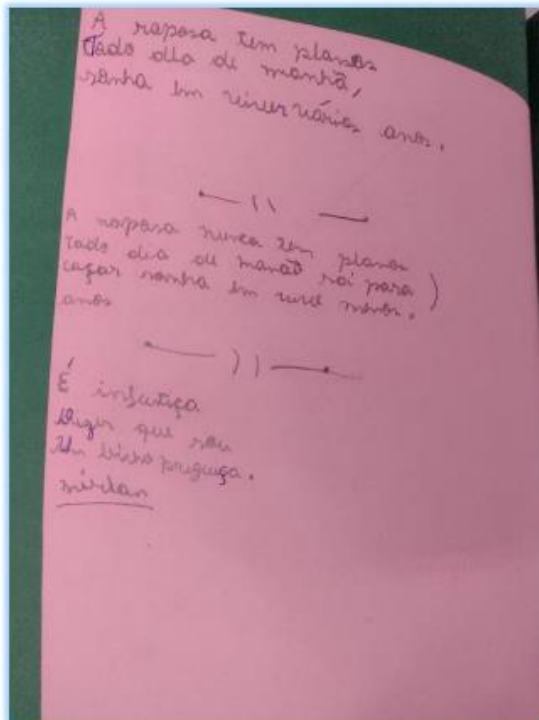 A raposa tem planos
Todo dia de manhã,
sonha em viver vários anos.
A raposa nunca tem planos
todo dia de manhã sai para
caçar sonha em viver menos.
anos
É injustiça
Dizer que sou
Um bicho preguiça.